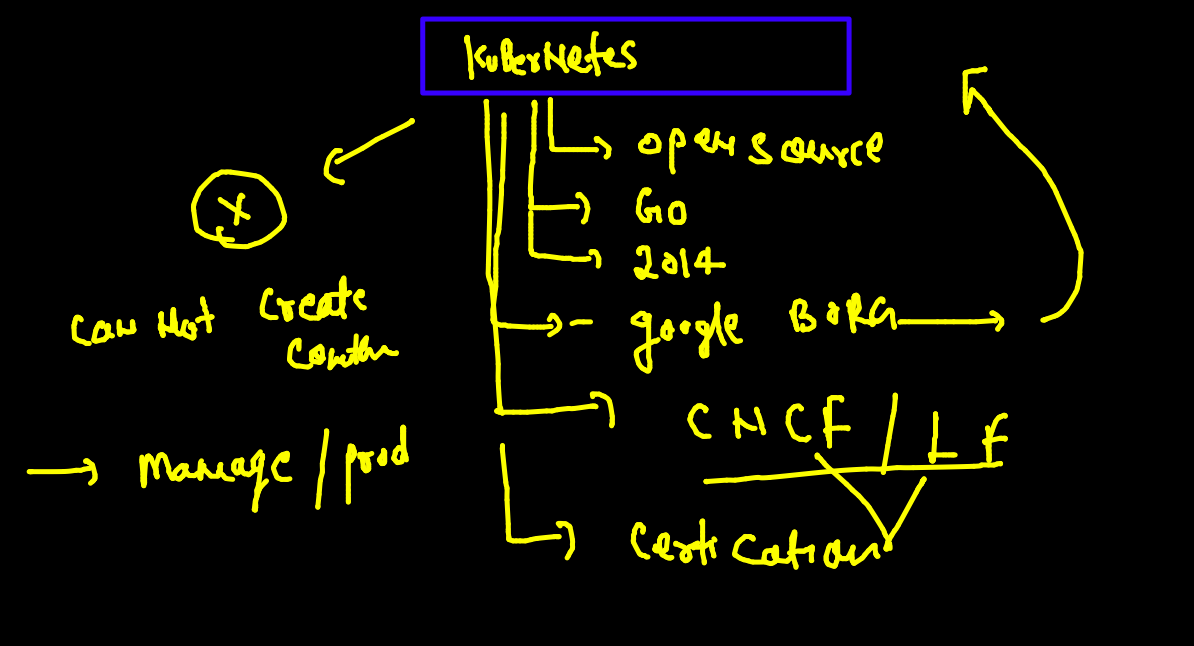 KuBerNetes
open source
GO
2014
google BORG
CNCF / LF
Certication
X
Can Not Create
Contan
Manage / prod